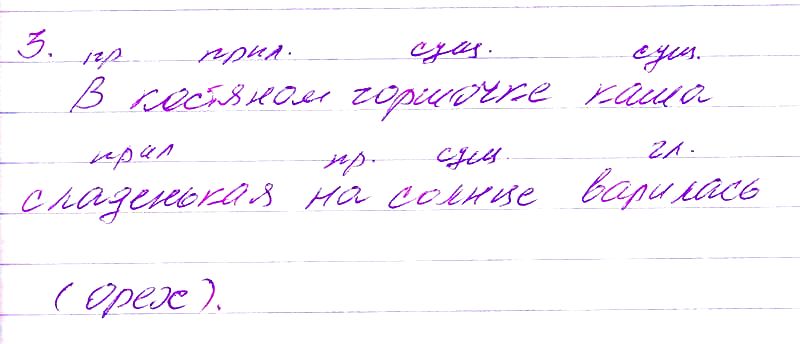 3. пр прил. сущ. сущ.
В костяном горшочке каша
прил пр. сущ. гл.
сладенькая на солнце варилась
(орех).